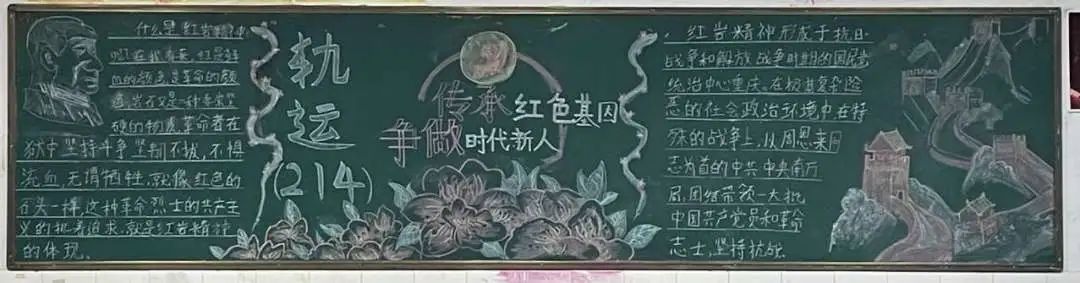 什么是红岩精神
呢?在我看来,红是鲜
血的颜色是革命的颜
色岩石又是一种非常坚
硬的物质,革命者在
狱中坚持斗争坚韧不拔,不惧
流血,无谓牺牲,就像红色的
石头一样,这种革命烈士的共产主
义的执着追求,就是红岩精神
的体现。
轨
运
(214)
传承红色基因
争做时代新人
红岩精神形成于抗日
战争和解放战争时期的国民党
统治中心重庆。在极其复杂险
恶的社会政治环境中在特
殊的战争上,以周恩来同
志为首的中共中央南方
局,团结带领一大批
中国共产党员和革命
志士,坚持抗战